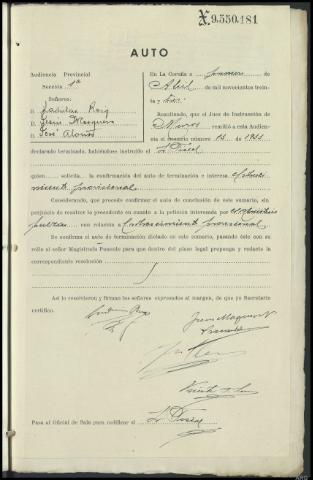 X.9.550.181
AUTO
Audiencia Provincial
Sección 1ª
Señores:
D. Ladislao Roig
D. Jesús Mosquera
D. José Alonso
En La Coruña a primero de
Abril de mil novecientos trein-
ta y
Resultando, que el Juez de Instrucción de
remitió a esta Audien-
cia el sumario número 14 de 1933
declarado terminado, habiéndose instruído el Sr. Fiscal
quien solicita la confirmación del auto de terminación e interesa el sobresei-
miento provisional
Considerando, que procede confirmar el auto de conclusión de este sumario, sin
perjuicio de resolver lo procedente en cuanto a la petición interesada por el Ministerio
con relación a sobreseimiento provisional
Se confirma el auto de terminación dictado en este sumario, pasando éste con su
rollo al señor Magistrado Ponente para que dentro del plazo legal proponga y redacte la
correspondiente resolución
Así lo resolvieron y firman los señores expresados al margen, de que yo Secretario
certifico.
Pasa al Oficial de Sala para notificar al Sr. Fiscal